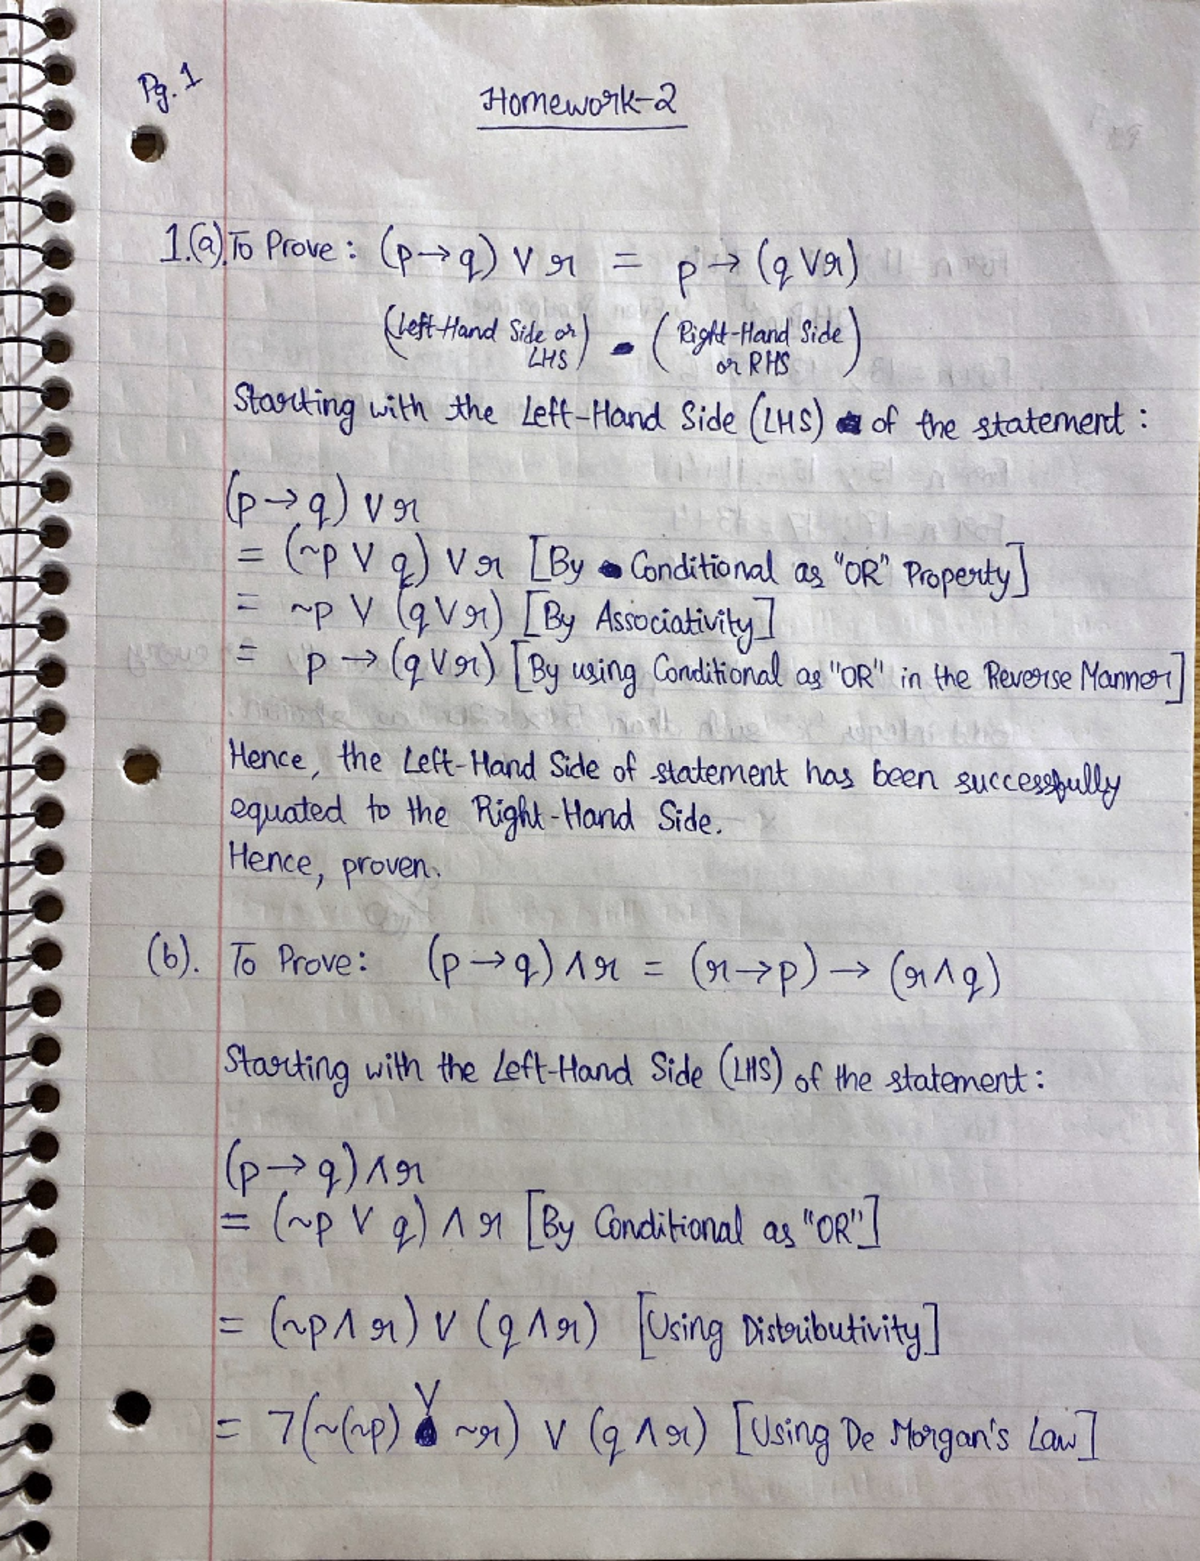 Pg. 1
Homework-2
1.(a). To Prove: (p→q) ∨ r = p → (q ∨ r)
(Left-Hand Side or LHS) (Right-Hand Side or RHS)
Starting with the Left-Hand Side (LHS) of the statement:
(p→q) ∨ r
= (~p ∨ q) ∨ r [By Conditional as "OR" Property]
= ~p ∨ (q ∨ r) [By Associativity]
= p → (q ∨ r) [By using Conditional as "OR" in the Reverse Manner]
Hence, the Left-Hand Side of statement has been successfully
equated to the Right-Hand Side.
Hence, proven.
(b). To Prove: (p→q) ∧ r = (r→p) → (r ∧ q)
Starting with the Left-Hand Side (LHS) of the statement:
(p→q) ∧ r
= (~p ∨ q) ∧ r [By Conditional as "OR"]
= (~p ∧ r) ∨ (q ∧ r) [Using Distributivity]
= ¬(~(~p) ∨ ~r) ∨ (q ∧ r) [Using De Morgan's Law]